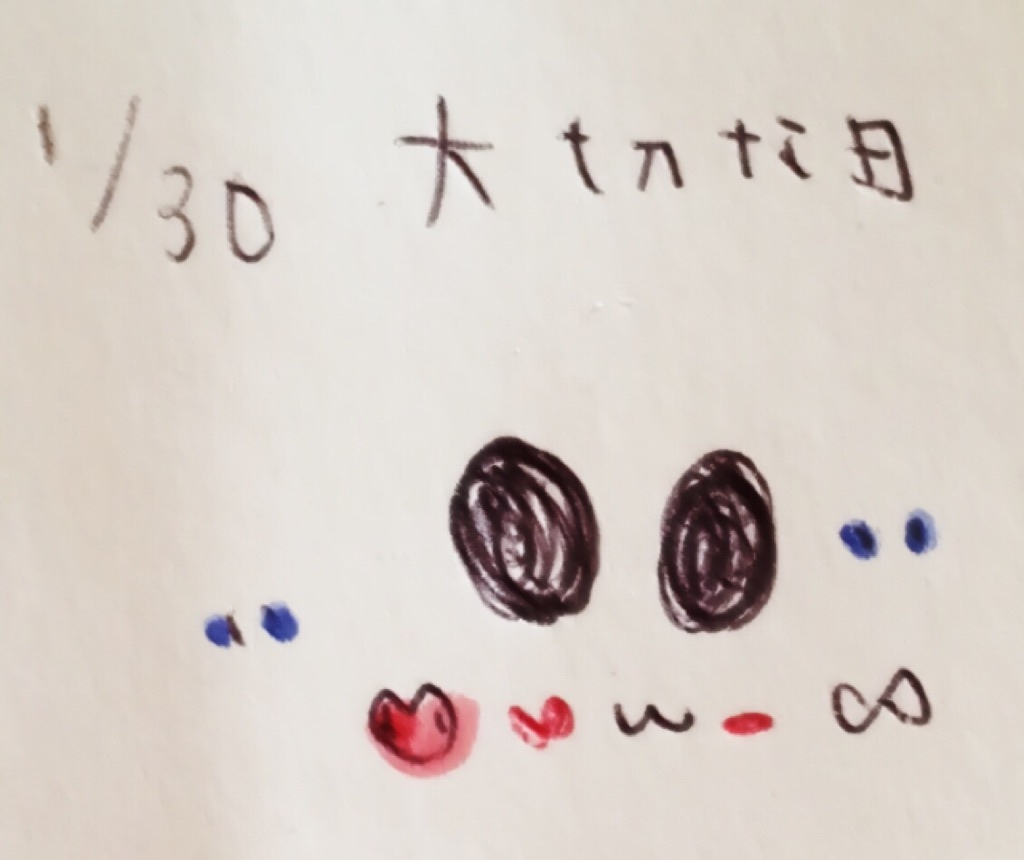 1/30 大切な日
ω ∞